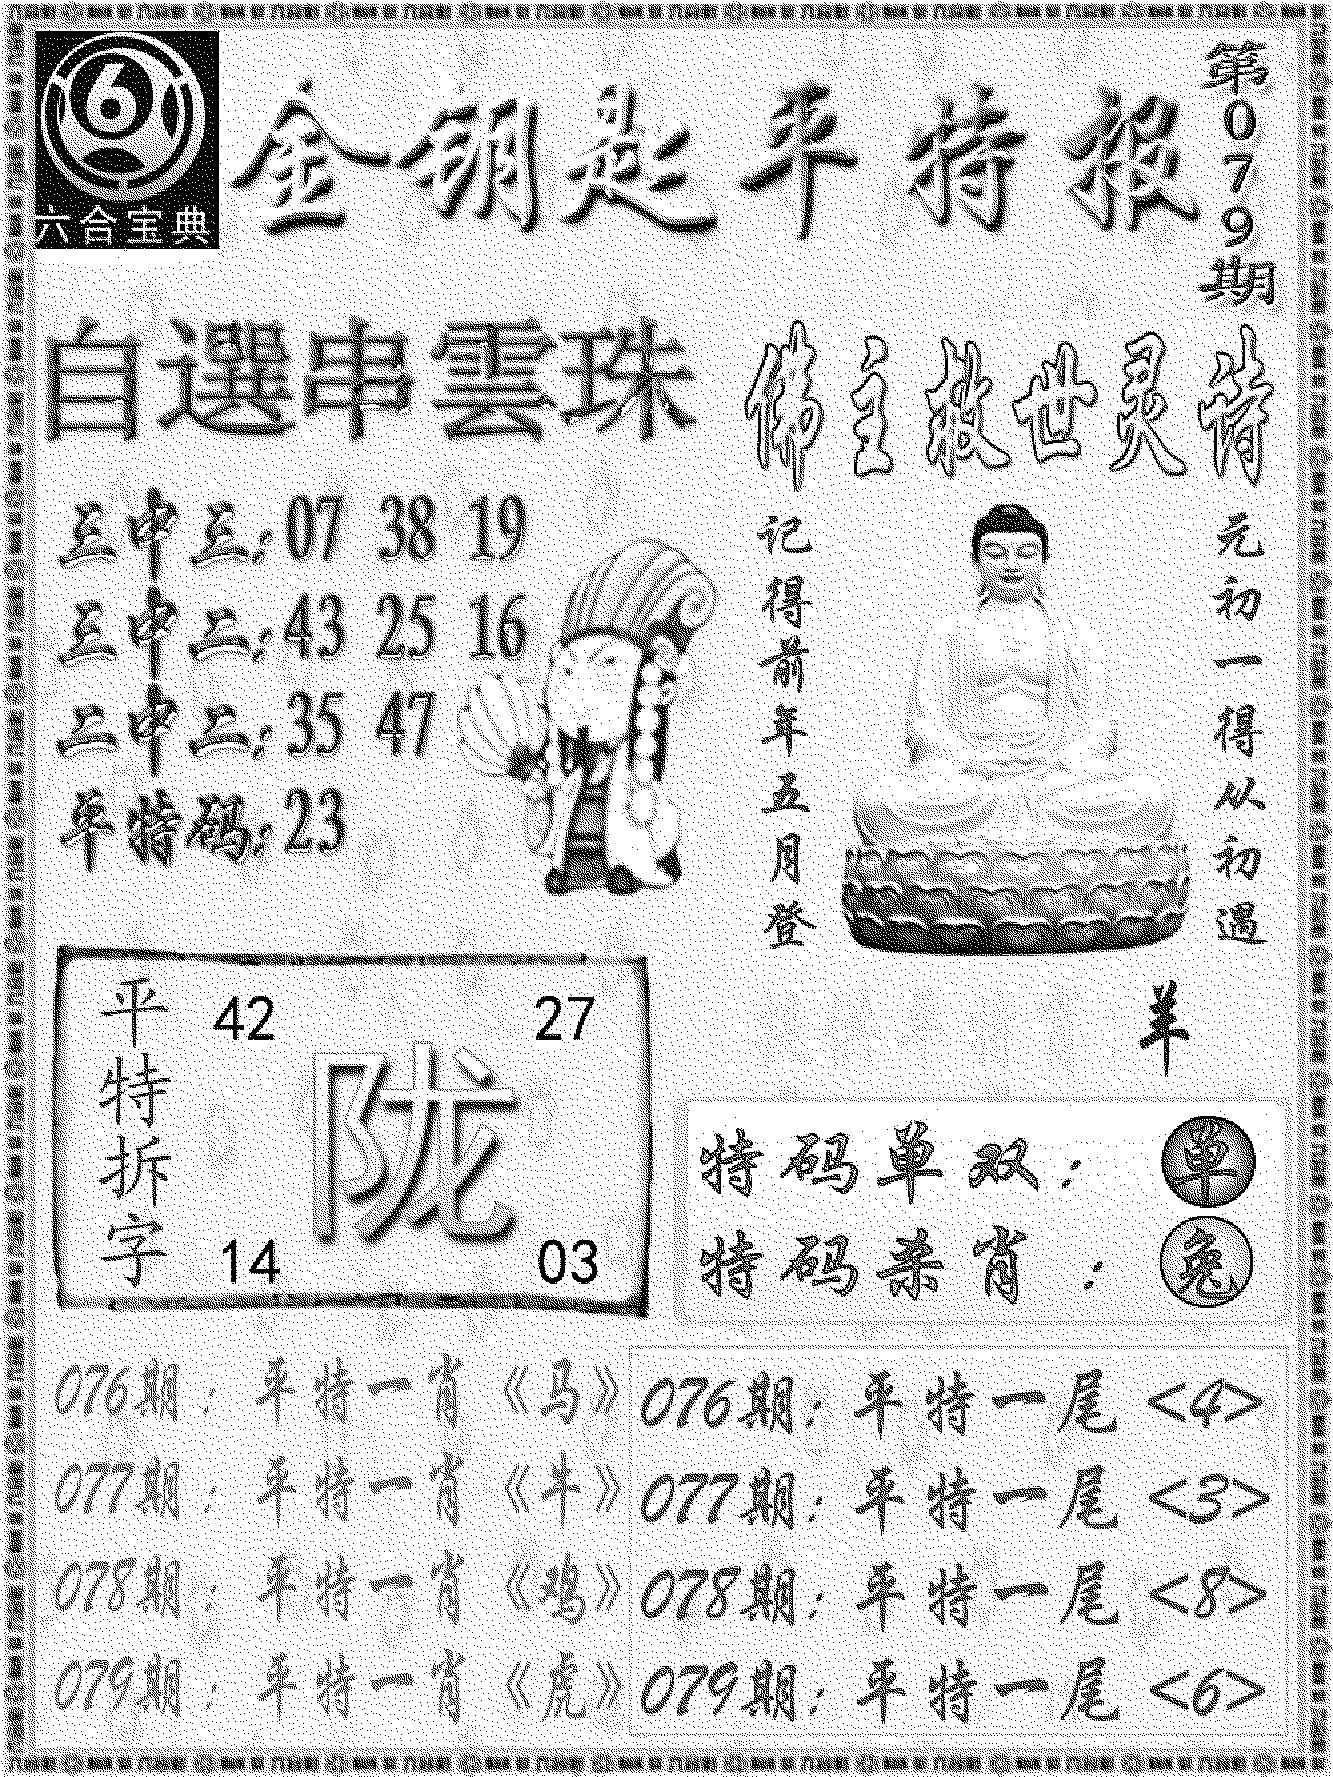 六合宝典
金钥匙平特报
第079期
自選串雲珠
三中三:07 38 19
三中二:43 25 16
二中二:35 47
平特码:23
佛主救世灵符
元初一得从初遇
记得前年五月登
羊
平特拆字
42 27
陇
14 03
特码单双:单
特码杀肖:兔
076期:平特一肖《马》
077期:平特一肖《牛》
078期:平特一肖《鸡》
079期:平特一肖《虎》
076期:平特一尾<4>
077期:平特一尾<3>
078期:平特一尾<8>
079期:平特一尾<6>